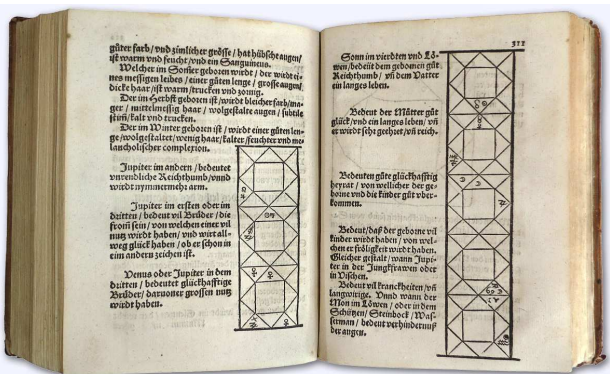 güter farb/ vnd zimlicher grösse/ hat hübsche augen/
ist warm vnd feucht/ vnd ein Sanguineus.
Welcher im Som̄er geboren wirdt/ der wirt ei-
nes messigen leibes/ einer güten lenge/ grosse augen/
dicke haar/ ist warm/ trucken vnd zornig.
Der im Herbst geboren ist/ wirdt bleicher farb/ ma-
ger/ mittelmessig haar/ wolgestalte augen/ subtile
stirn/ kalt vnd trucken.
Der im Winter geboren ist/ wirdt einer güten len-
ge/ wolgestaltet/ wenig haar/ kalter/ feuchter vnd me-
lancholischer complexion.
Jupiter im andern/ bedeutet
vnendliche Reichthumb/ vnnd
wirdt nymmermehr arm.
Jupiter im ersten oder im
dritten/ bedeut vil Brüder/ die
from sein/ von welchen einer vil
nutz wirdt haben/ vnd wirt all-
weg glück haben/ ob er schon in
eim andern zeichen ist.
Venus oder Jupiter in dem
dritten/ bedeutet glückhafftige
Brüder/ daruoner grossen nutz
wirdt haben.
311
Sonn im vierdten vnd Lö-
wen/ bedeüt dem gebornen güt
Reichthumb/ vn̄ dem Vatter
ein langes leben.
Bedeut der Mütter güt
glück/ vnd ein langes leben/ vn̄
er wirdt sehr geehret/ vn̄ reich.
Bedeuten güte glückhafftig
heyrat/ von wellicher der ge-
borne vnd die kinder güt vber-
kommen.
Bedeut/ daß der geborne vil
kinder wirdt haben/ von wel-
chen er fröligkeit wirdt haben.
Gleicher gestalt/ wann Jupi-
ter in der Jungkfrawen oder
in Vischen.
Bedeut vil kranckheiten/ vn̄
langwirige. Vnnd wann der
Mon im Löwen/ oder in dem
Schützen/ Steinbock/ Was-
serman/ bedeut verhindernuß
der augen.